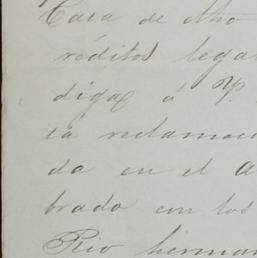 Casa de dho
réditos lega
diga á V.
la reclamac
da en el A
brado con los
Rio herman